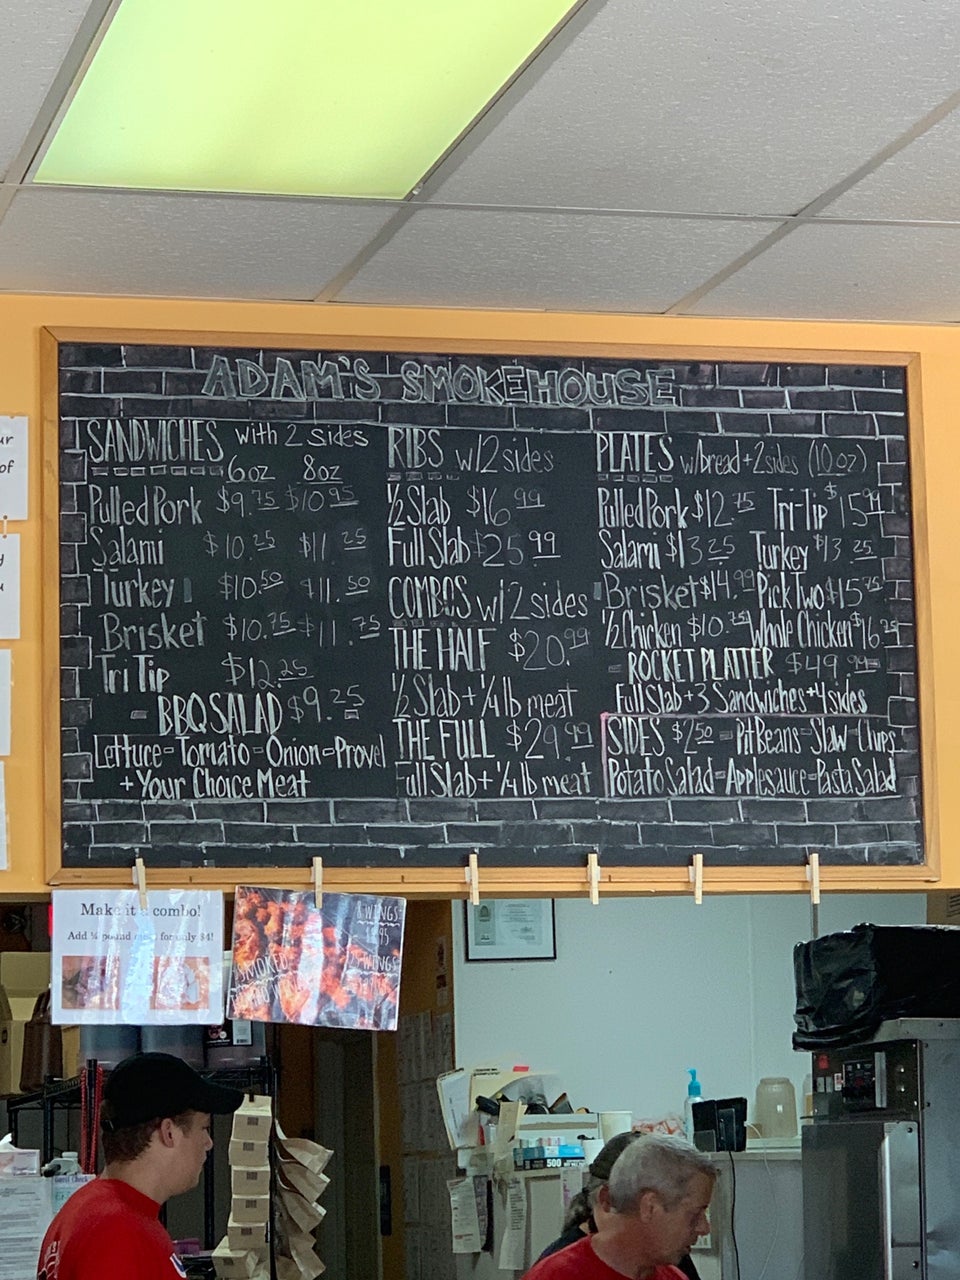 ADAM'S SMOKEHOUSE
SANDWICHES with 2 sides
6oz 8oz
Pulled Pork $9.75 $10.95
Salami $10.25 $11.25
Turkey $10.50 $11.50
Brisket $10.75 $11.75
Tri Tip $12.25
- BBQ SALAD $9.25
Lettuce-Tomato-Onion-Provel
+ Your Choice Meat
RIBS w/2 sides
1/2 Slab $16.99
Full Slab $25.99
COMBOS w/2 sides
THE HALF $20.99
1/2 Slab + 1/4 lb meat
THE FULL $29.99
Full Slab + 1/4 lb meat
PLATES w/bread + 2 sides (10 oz)
Pulled Pork $12.75 Tri-Tip $15.99
Salami $13.25 Turkey $13.25
Brisket $14.99 Pick Two $15.75
1/2 Chicken $10.75 Whole Chicken $16.25
- ROCKET PLATTER $49.99
Full Slab + 3 Sandwiches + 4 sides
SIDES $2.50 - Pit Beans - Slaw - Chips
Potato Salad - Applesauce - Pasta Salad
Make it a combo!
Add ¼ pound meat for only $4!
8 WINGS
SMOKED
WINGS
500